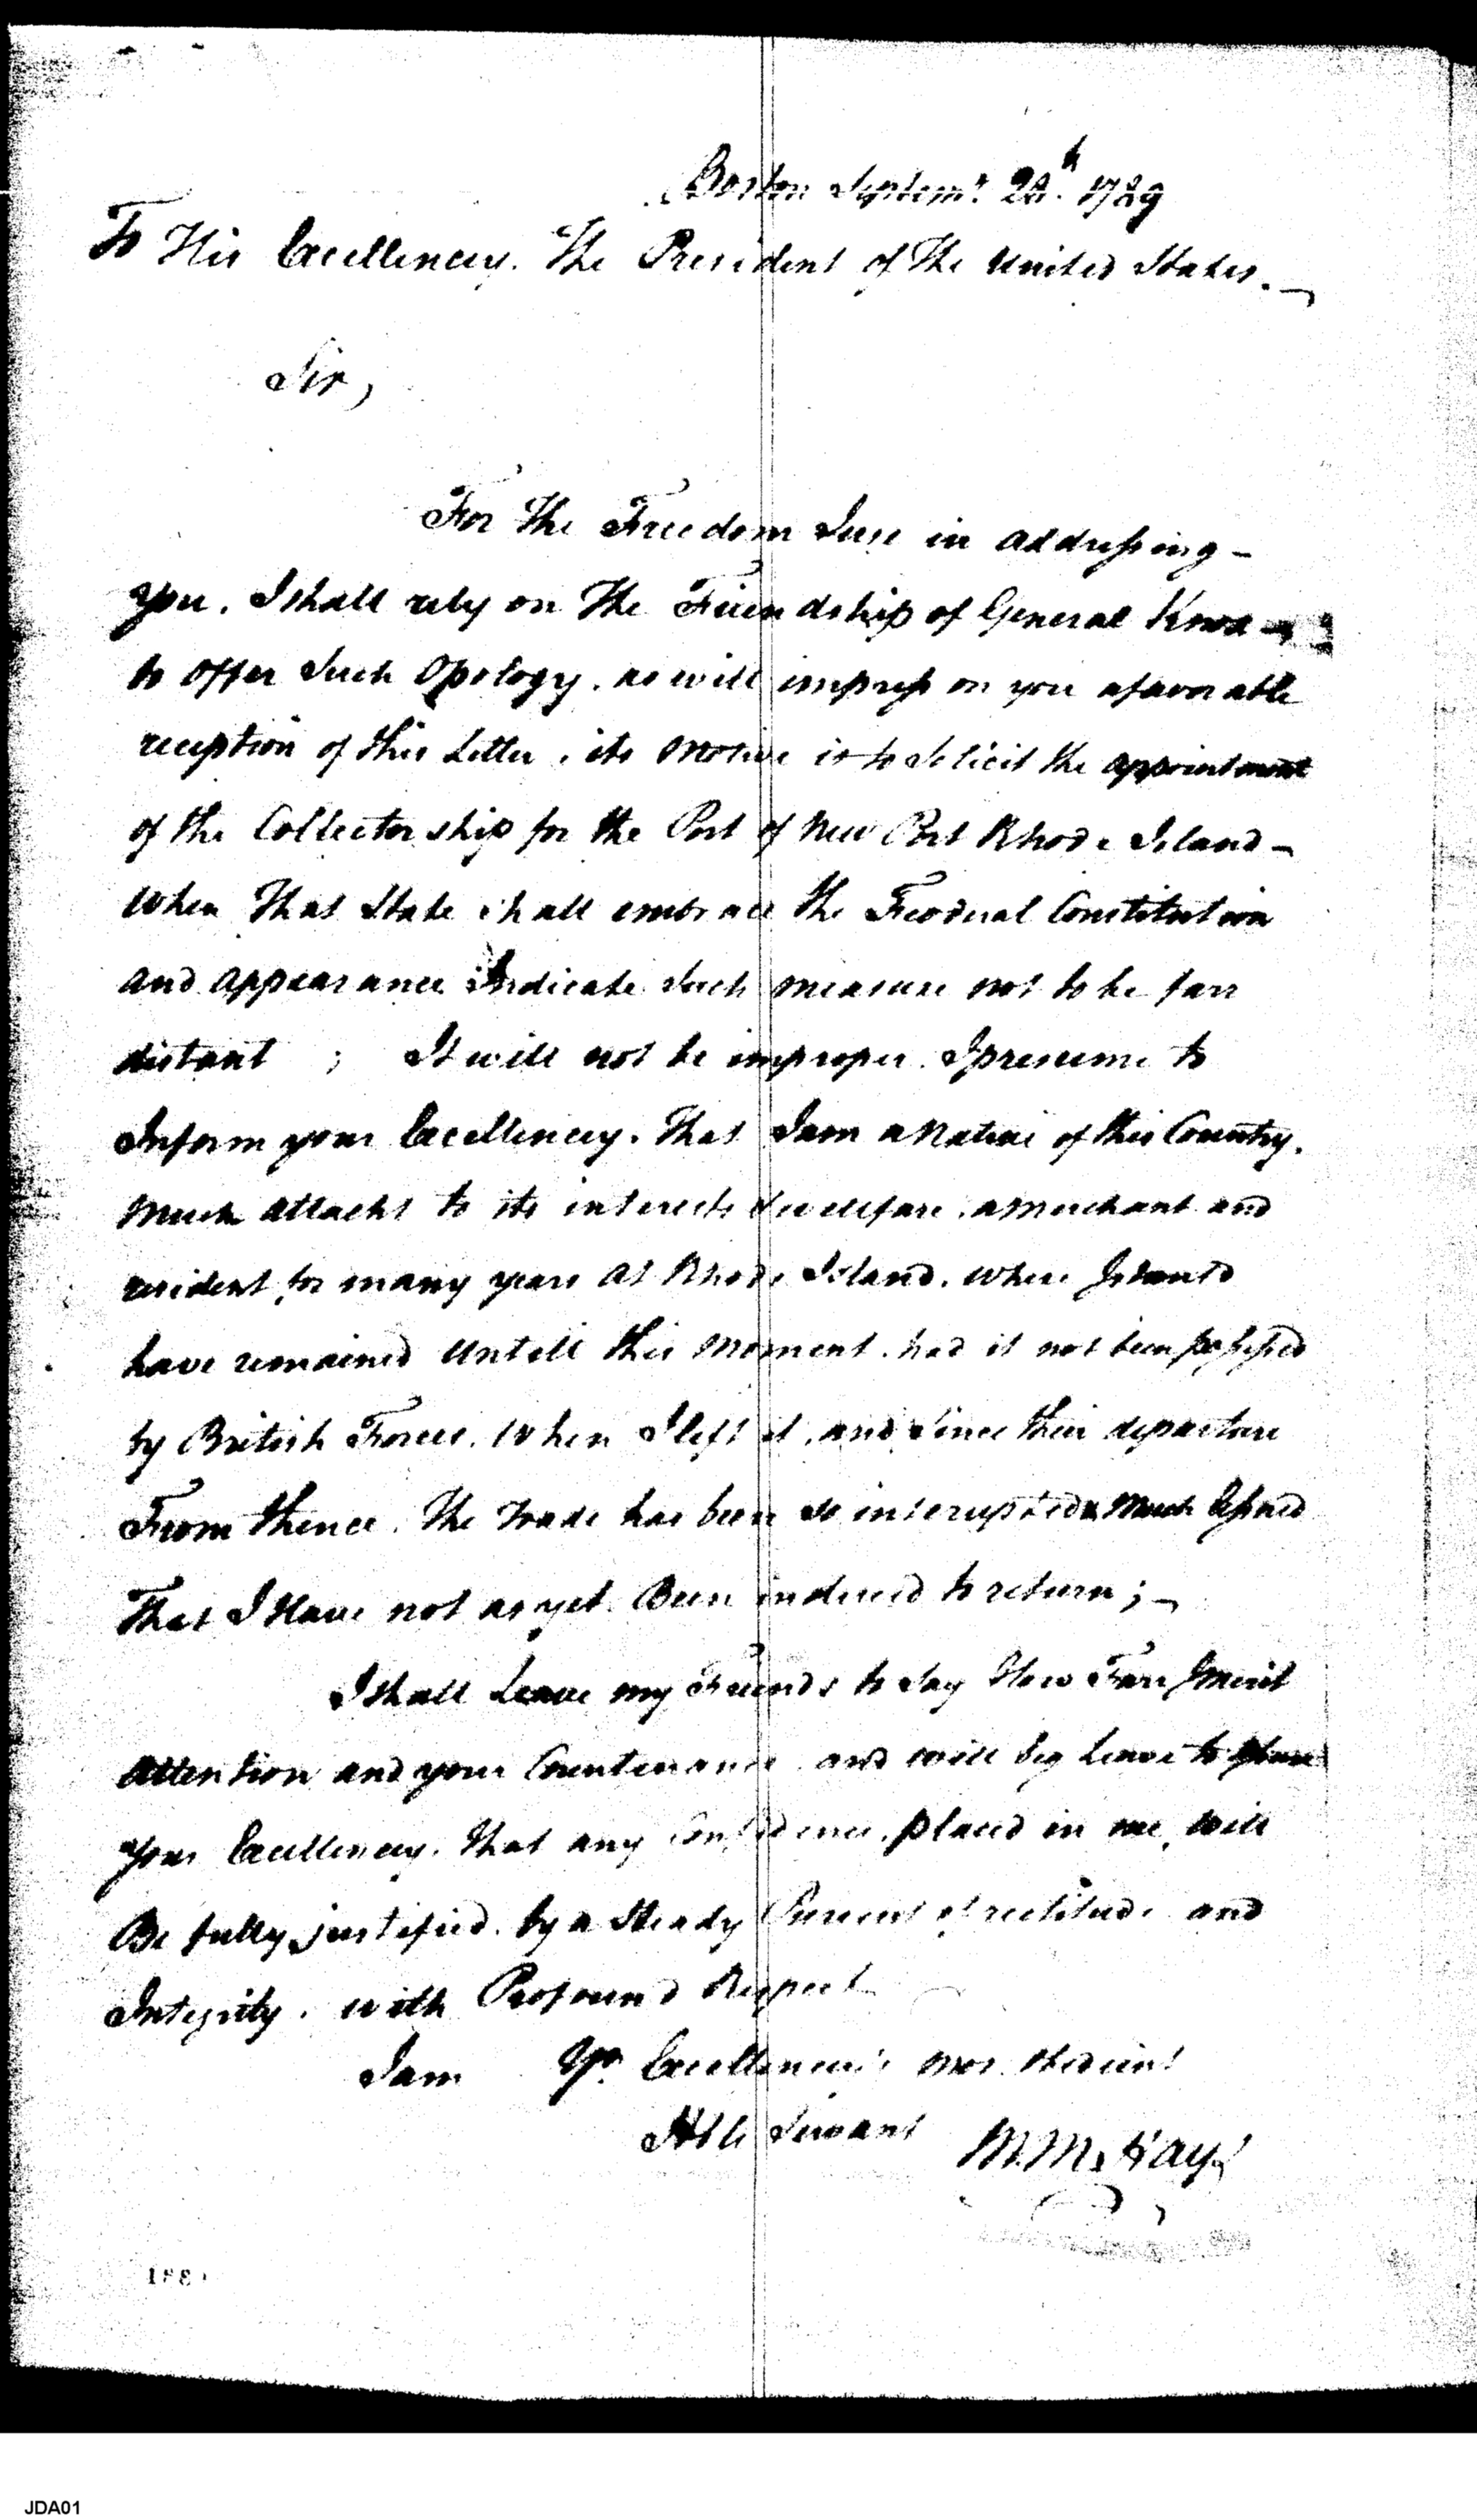 Boston Septemr. 20th. 1789
To His Excellency. The President of The United States.
Sir,
For The Freedom I use in addressing
you, I shall rely on The Friendship of General Knox
to offer Such Opology, as will impress on you a favorable
reception of this Letter, its motive is to Solicit the appointment
of the Collectorship for the Port of New Port Rhode Island
when That State shall embrace The Feoderal Constitution
and appearance Indicate Such measure not to be farr
distant ; It will not be improper. I presume to
Inform your Excellency. That I am a Native of this Country.
Much attacht to its interests & wellfare, a Merchant and
resident for many years at Rhode Island. where I should
have remained untill this moment. had it not been possessed
by British Forces. When I left it, and Since their departure
From thence. The Trade has been So interupted & Much lessned
That I Have not as yet. Been induced to return ;
I shall Leave my Friends to Say How Farr I merit
attention and your Countenance and will beg Leave to
your Excellency. That any confidence, placed in me, will
Be fully justified. by a Steady Pursuit of rectitude and
Integrity. with Profound Respect
I am Yr. Excellencies mos. obedient
Hble Servant M. M. Hays
188
JDA01